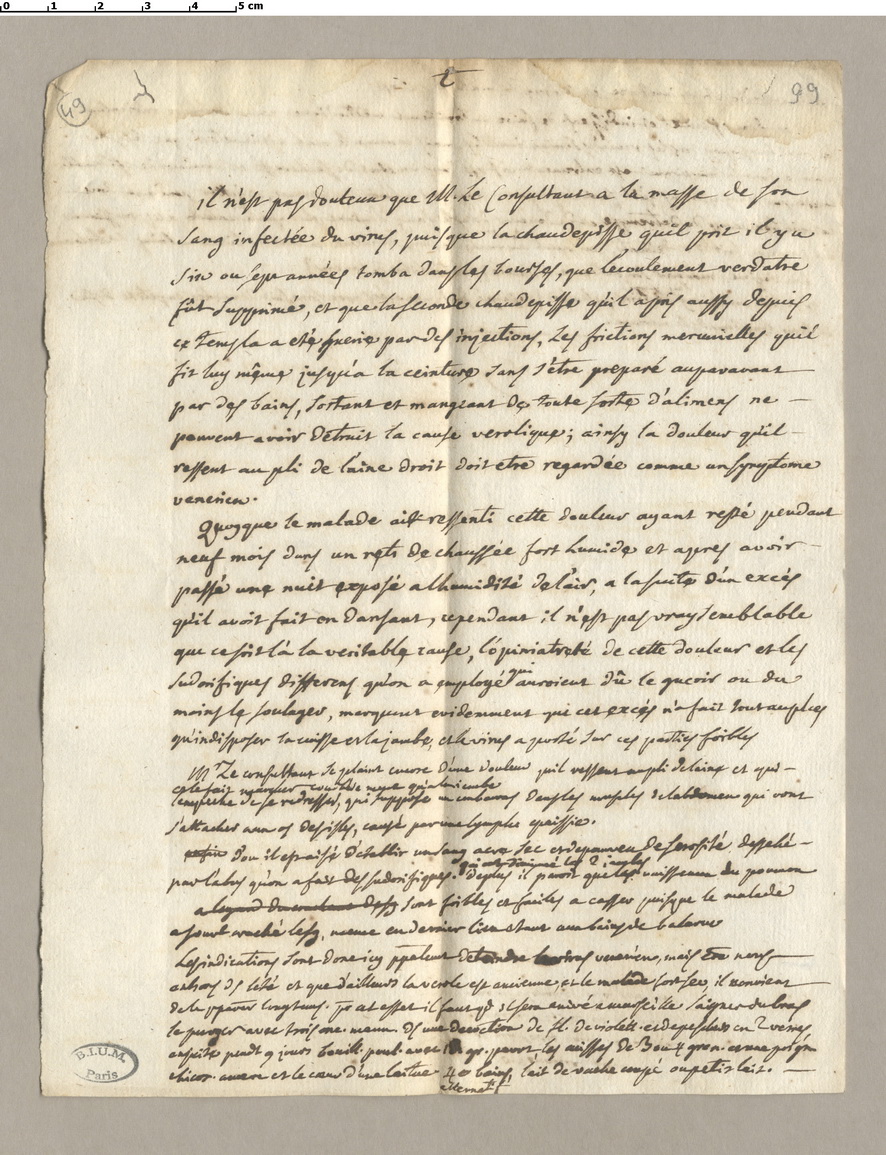 0 1 2 3 4 5 cm
49
t
99
il n'est pas douteux que M. Le Consultant a la masse de son
sang infectée du virus, puisque la chaudepisse quil prit il y a
six ou sept années tomba dans les bourses, que lecoulement verdatre
fût supprimé, et que la seconde chaudepisse qu'il a pris aussy depuis
ce temps la a eté guerie par des injections, Les frictions mercurielles qu'il
fit luy même jusqu'a la ceinture sans s'être preparé auparavant
par des bains, sortant et mangeant de toute sorte d'alimens ne
peuvent avoir détruit la cause verolique; ainsy la douleur qu'il
ressent au pli de l'aine droit doit etre regardée comme un symptome
venerien.
Quoyque le malade ait ressenti cette douleur ayant resté pendant
neuf mois dans un rets de chaussée fort humide et apres avoir
passé une nuit exposé a lhumidité de l'air, a la suite d'un excés
qu'il avoit fait en dansant, cependant il n'est pas vraysemblable
que ce soit là la veritable cause, l'opiniatreté de cette douleur et les
sudorifiques differens qu'on a employé qui auroient dû le guerir ou du
moins le soulager, marquent evidemment que cet excés n'a fait tout au plus
qu'indisposer la cuisse et la jambe, et le virus a porté sur ces parties foibles
Mr Le consultant se plaint encore d'une douleur quil ressent au pli de laine et qui
lempeche de se redresser, qui suppose un embarras dans les muscles de labdomen qui vont
s'attacher aux os des isles, causé par une lymphe epaissie.
D'ou il est aisé d'etablir un sang acre sec et depourveu de serosité, desseché
par l'abus qu'on a fait des sudorifiques. qui ont diminué les 2 jambes
depuis il paroit que les vaisseaux du poumon
sont foibles et faciles a casser puisque le malade
a souvent craché le sang, meme en dernier lieu etant aux bains de balaruc
Les indications sont donc icy d'eteindre le virus venerien, mais
et que d'ailleurs la verole est ancienne, et le malade fort sec, il convient
de le preparer longtems. Pour cet effet il faut qd il sera arrivé a marseille saigner du bras
le purger avec trois onc. mann. ds une decoction de fl. de violete
ensuite pendt 9 jours bouill. avec les cuisses de 3 ou 4 gren. et une poign.
chicor. amere et le cœur d'une laitue bains, lait de vache coupé ou petit lait.
alternatt
B.I.U.M.
Paris